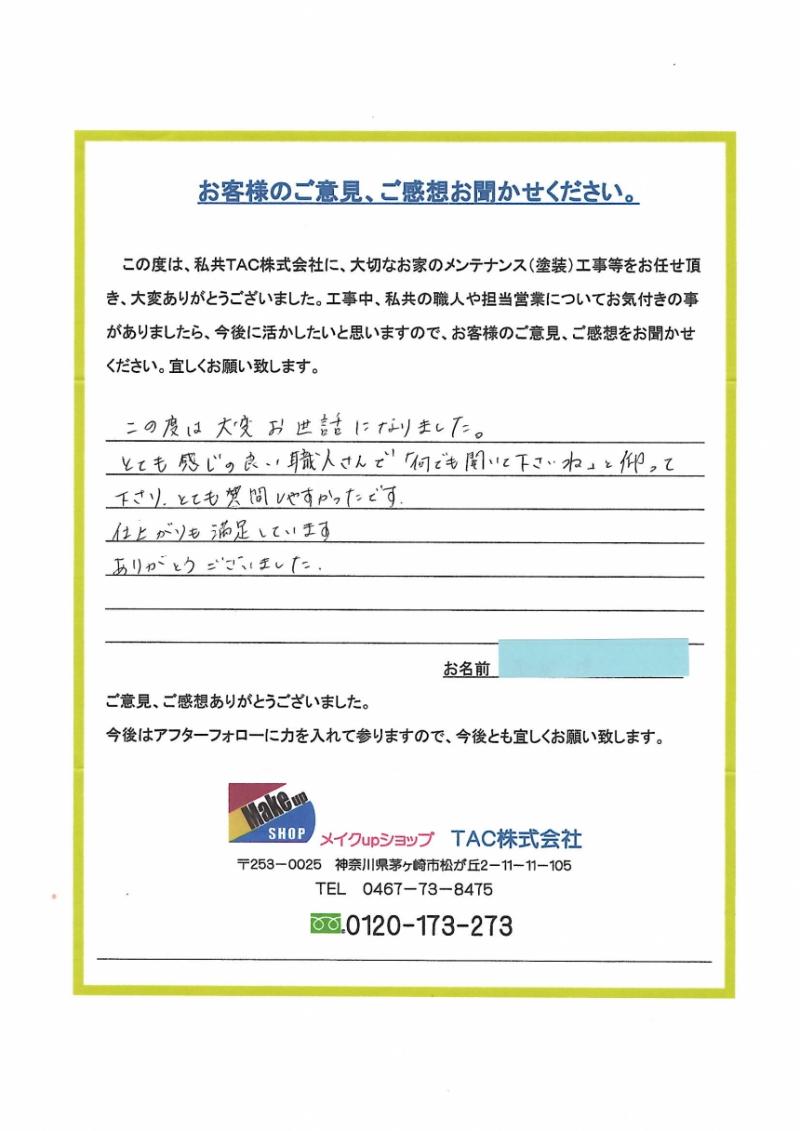 お客様のご意見、ご感想お聞かせください。
この度は、私共TAC株式会社に、大切なお家のメンテナンス(塗装)工事等をお任せ頂
き、大変ありがとうございました。工事中、私共の職人や担当営業についてお気付きの事
がありましたら、今後に活かしたいと思いますので、お客様のご意見、ご感想をお聞かせ
ください。宜しくお願い致します。
この度は大変お世話になりました。
とても感じの良い職人さんで「何でも聞いて下さいね」と仰って
下さり、とても質問しやすかったです.
仕上がりも満足しています
ありがとうございました.
お名前
ご意見、ご感想ありがとうございました。
今後はアフターフォローに力を入れて参りますので、今後とも宜しくお願い致します。
Make up
SHOP
メイクupショップ TAC株式会社
〒253-0025 神奈川県茅ヶ崎市松が丘2-11-11-105
TEL 0467-73-8475
0120-173-273